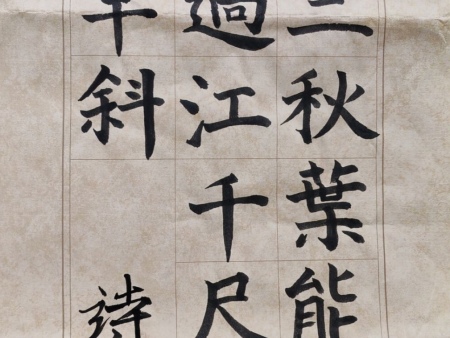 三秋葉能
過江千尺
斜
詩